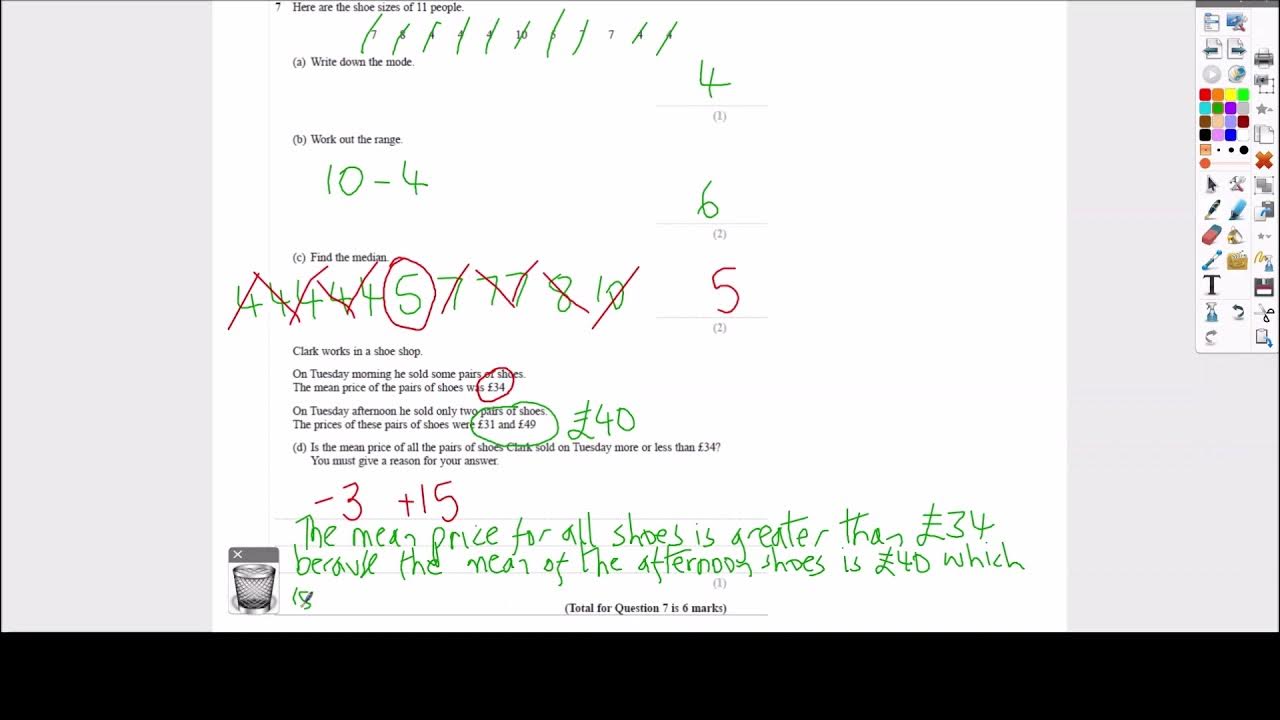 7 Here are the shoe sizes of 11 people.
7 8 4 4 4 10 5 7 7 4 4
(a) Write down the mode.
4
(1)
(b) Work out the range.
10 - 4
6
(2)
(c) Find the median.
4 4 4 4 4 5 7 7 7 8 10
5
(2)
Clark works in a shoe shop.
On Tuesday morning he sold some pairs of shoes.
The mean price of the pairs of shoes was £34
On Tuesday afternoon he sold only two pairs of shoes.
The prices of these pairs of shoes were £31 and £49
£40
(d) Is the mean price of all the pairs of shoes Clark sold on Tuesday more or less than £34?
You must give a reason for your answer.
-3 +15
The mean price for all shoes is greater than £34
because the mean of the afternoon shoes is £40 which
(1)
is
(Total for Question 7 is 6 marks)
T